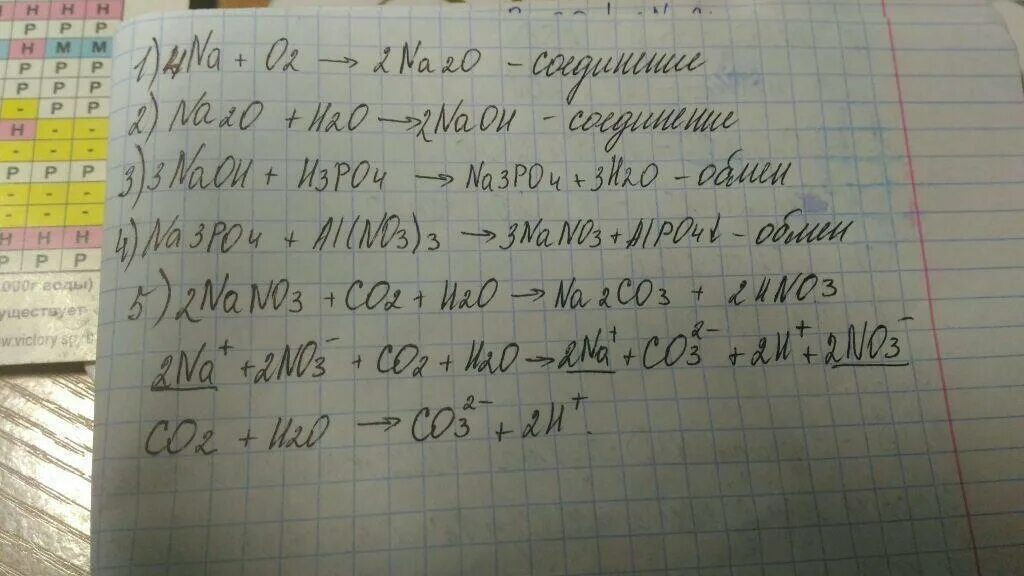 Н Н Н Н
Р Р Р
Н М М
Р Р Р
Р Р
- Р Р
Н - -
- - -
Р Р Р
- - -
Н Н Н
Р Р Р
000г воды)
ществует
w.victory
1) 4Na + O2 → 2Na2O - соединение
2) Na2O + H2O → 2NaOH - соединение
3) 3NaOH + H3PO4 → Na3PO4 + 3H2O - обмен
4) Na3PO4 + Al(NO3)3 → 3NaNO3 + AlPO4↓ - обмен
5) 2NaNO3 + CO2 + H2O → Na2CO3 + 2HNO3
2Na⁺ + 2NO3⁻ + CO2 + H2O → 2Na⁺ + CO3²⁻ + 2H⁺ + 2NO3⁻
CO2 + H2O → CO3²⁻ + 2H⁺.